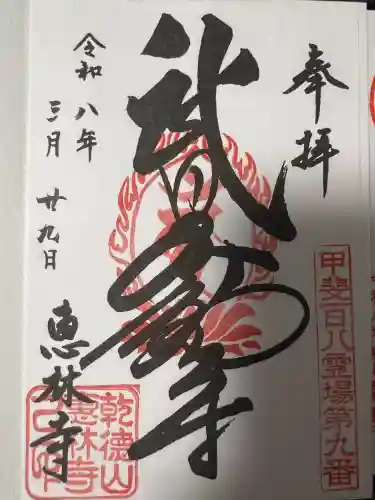 奉拝
甲斐百八霊場第九番
武田不動尊
令和八年
三月廿九日
恵林寺
乾徳山
恵林寺